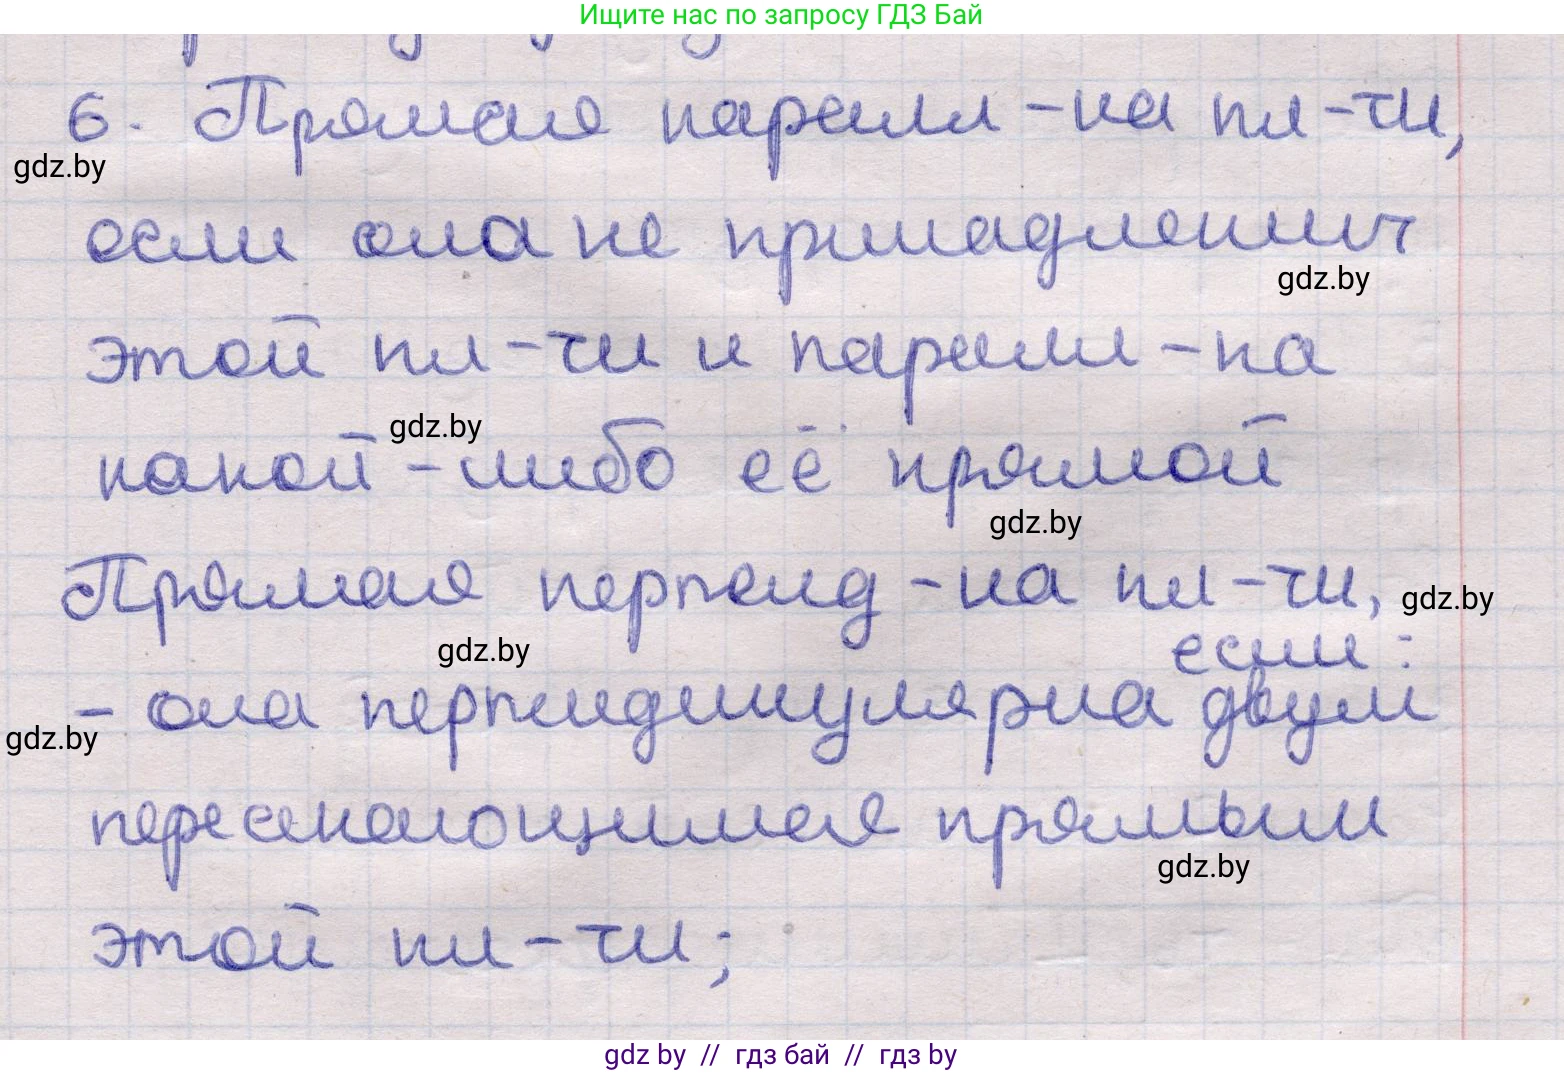 Ищите нас по запросу ГДЗ Бай
6. Прямая паралл-на пл-ти,
gdz.by
если она не принадлежит
gdz.by
этой пл-ти и паралл-на
gdz.by
какой-либо её прямой
gdz.by
Прямая перпенд-на пл-ти,
gdz.by
если:
gdz.by
- она перпендикулярна двум
gdz.by
пересекающимся прямым
gdz.by
этой пл-ти;
gdz by // гдз бай // гдз by